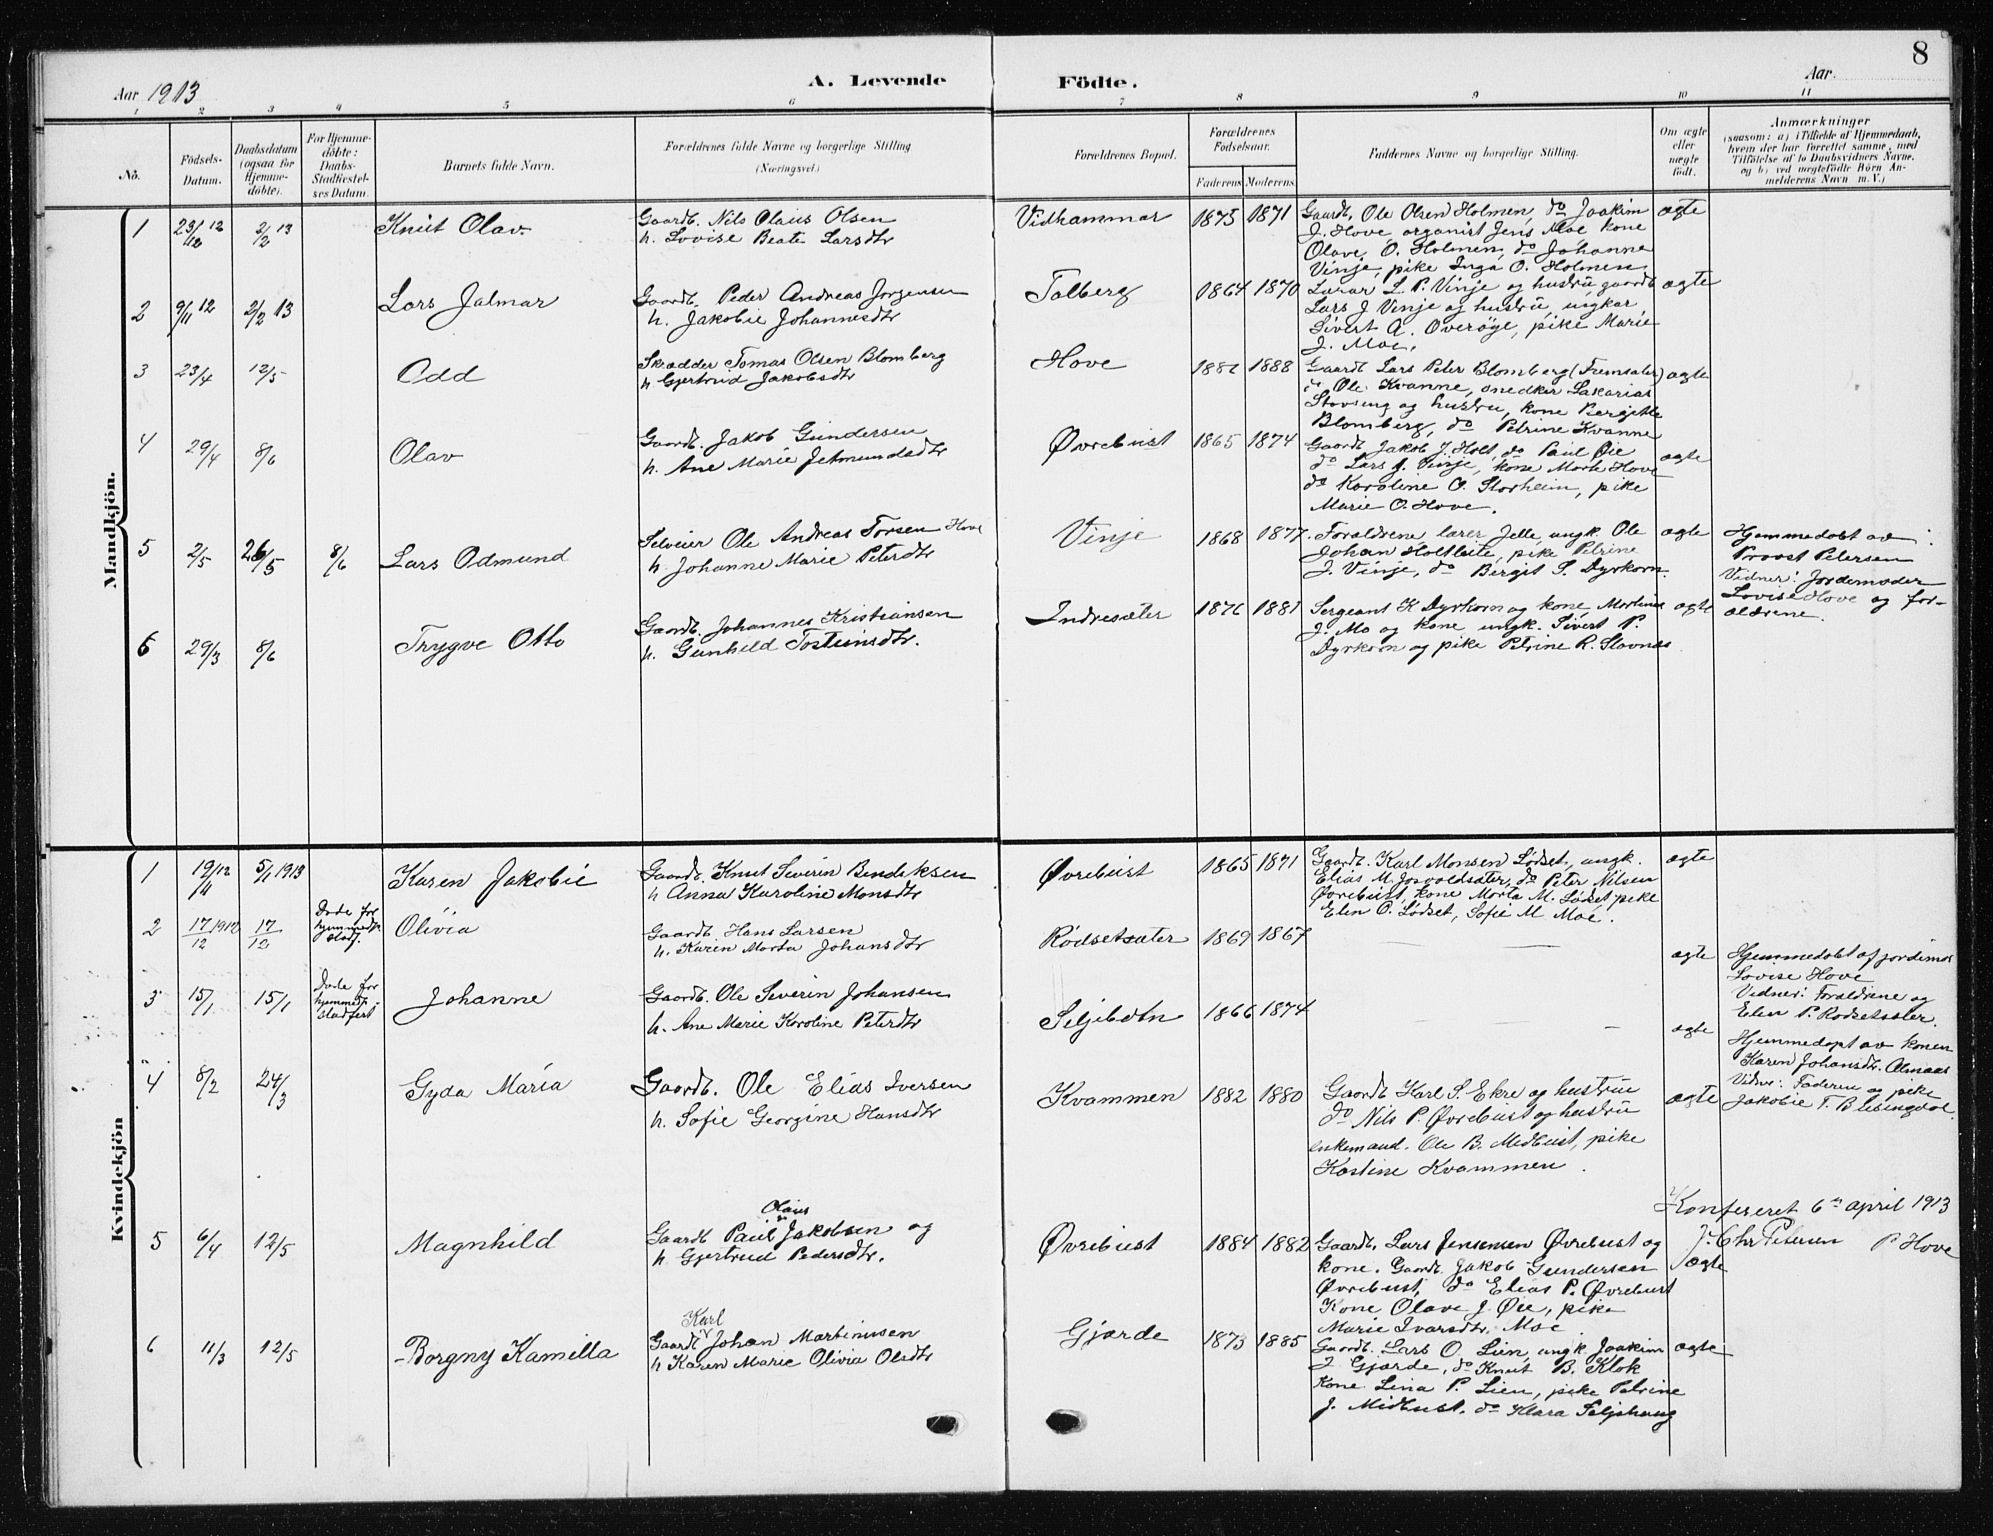 8
Aar 1913
A. Levende
Födte.
Aar.
1 2 3 4 5 6 7 8 9 10 11
No.
Födsels-
Datum.
Daabsdatum
(ogsaa for
Hjemme-
döbte).
For Hjemme-
döbte:
Daabs-
Stadfæstel-
ses Datum.
Barnets fulde Navn.
Forældrenes fulde Navne og borgerlige Stilling
(Næringsvei.)
Forældrenes Bopæl.
Forældrenes
Födselsaar.
Faderens Moderens
Faddernes Navne og borgerlige Stilling.
Om ægte
eller
uægte
födt.
Anmærkninger
(saasom: a) i Tilfælde af Hjemmedaab,
hvem der har forrettet samme, med
Tilföielse af to Daabsvidners Navne,
og b) ved uægtefödte Börn An-
melderens Navn m. V.)
Mandkjön.
1 23/12 12 2/2 13 Knut Olav.
Gaardb. Nils Olaus Olsen
h. Lovise Beate Larsdtr
Vidhammar 1873 1871
Gaardb. Ole Olsen Holmen, do Joakim
J. Hove organist Jens Moe kone
Olave O. Holmen, do Johanne
Vinje, pike Inga O. Holmen
ægte
2 9/11 12 2/2 13 Lars Jalmar
Gaardb. Peder Andreas Jørgensen
h. Jakobie Johannesdtr
Talberg 1864 1870
Lærar L. P. Vinje og hustru, gaardb
Lars J Vinje og hustru, ungkar
Sivert A. Overøye, pike Marie
J. Moe.
ægte
3 23/4 12/5 Odd
Skrædder Tomas Olsen Blomberg
h Gjertrud Jakobsdtr
Hove 1888
Gaardb Lars Peter Blomberg (Fremsæter)
Ole Kvanne, snedker Sakarias
og hustru, kone Bergitte
Blomberg, do Petrine Kvanne
ægte
4 29/4 8/6 Olav
Gaardb. Jakob Gundersen
h. Ane Marie Jetmundsdtr
Øvrebust 1865 1874
Gaardb Jakob J. Holt, do Paul Øie
do Lars J. Vinje, kone Marte Hove
do Karoline O. Storheim, pike
Marie O. Hove.
ægte
5 2/5 26/5 8/6 Lars Odmund
Selveier Ole Andreas Torsen Hove
h. Johanne Marie Petersdtr
Vinje 1868 1877
Foraldrene lærer Jelle, ungk. Ole
Johan Holtbite, pike Petrine
J. Vinje, do Bergit S. Dyrkorn.
ægte
Hjemmedobt av
Provst Petersen
Vidner: Jordemoder
Lovise Hove og for-
ældrene.
6 29/3 8/6 Trygve Otto
Gaardb. Johannes Kristiansen
h. Gunhild Tosteinsdtr.
Indresæter 1876 1881
Sergeant K Dyrkorn og kone, Martinus
J. Mo og kone ungk. Sivert P.
Dyrkorn og pike Petrine R. Stavnes
ægte
Kvindekjön
1 19/11 12 5/1 1913 Karen Jakobie
Gaardb. Knut Severin Bendiksen
h Anna Karoline Monsdtr
Øvrebust 1865 1871
Gaardb. Karl Monsen Lødset, ungk.
Elias M. Josvoldsæter, do Peter Nilsen
Øvrebust, kone Marta M. Lødset pike
Elen O. Lødset, Sofie M Moe.
ægte
2 17/12 1912 17/12
Døde før
hjemmedp.
stadf.
Olivia
Gaardb Hans Larsen
h. Karen Marta Johansdtr
Rødsetsæter 1869 1867
ægte
Hjemmedobt af jordemor
Lovise Hove
Vidner: Foraldrene og
Elen P. Rødsetsæter.
3 15/1 15/1
Døde før
hjemmedp.
stadfest
Johanne
Gaardb. Ole Severin Johansen
h. Ane Marie Karoline Petersdtr
Seljebotn 1866 1874
ægte
Hjemmedøpt av konen
Karen Johansdtr. Almaas
Vidner: Faderen og pike
Jakobie T.
4 8/2 24/3 Gyda Maria
Gaardb. Ole Elias Iversen
h. Sofie Georgine Hansdtr
Kvammen 1882 1880
Gaardb Karl S. Ekre og hustru
do Nils P. Øvrebust og hustru
enkemand. Ole B. Midbust, pike
Kastine Kvammen.
ægte
Konfereret 6te april 1913
J. Chr Petersen P Hove
5 6/4 12/5 Magnhild
Olaus
Gaardb Paul Jakobsen og
h. Gjertrud Pedersdtr.
Øvrebust 1884 1882
Gaardb. Lars Jensensen Øvrebust og
kone. Gaardb. Jakob Gundersen
Øvrebust, do Elias P. Øvrebust
Kone Olave J. Øie, pike
Marie Ivarsdtr. Moe
ægte
6 11/3 12/5 Borgny Kamilla
Karl
Gaardb Johan Martinusen
h Karen Marie Olivia Olsdtr
Gjærde 1873 1885
Gaardb. Lars O. Lien, ungk. Joakim
J. Gjærde, do Knut B. Klok
Kone Lina P. Lien, pike Petrine
J. Midbust. do Klara Seljehaug
ægte